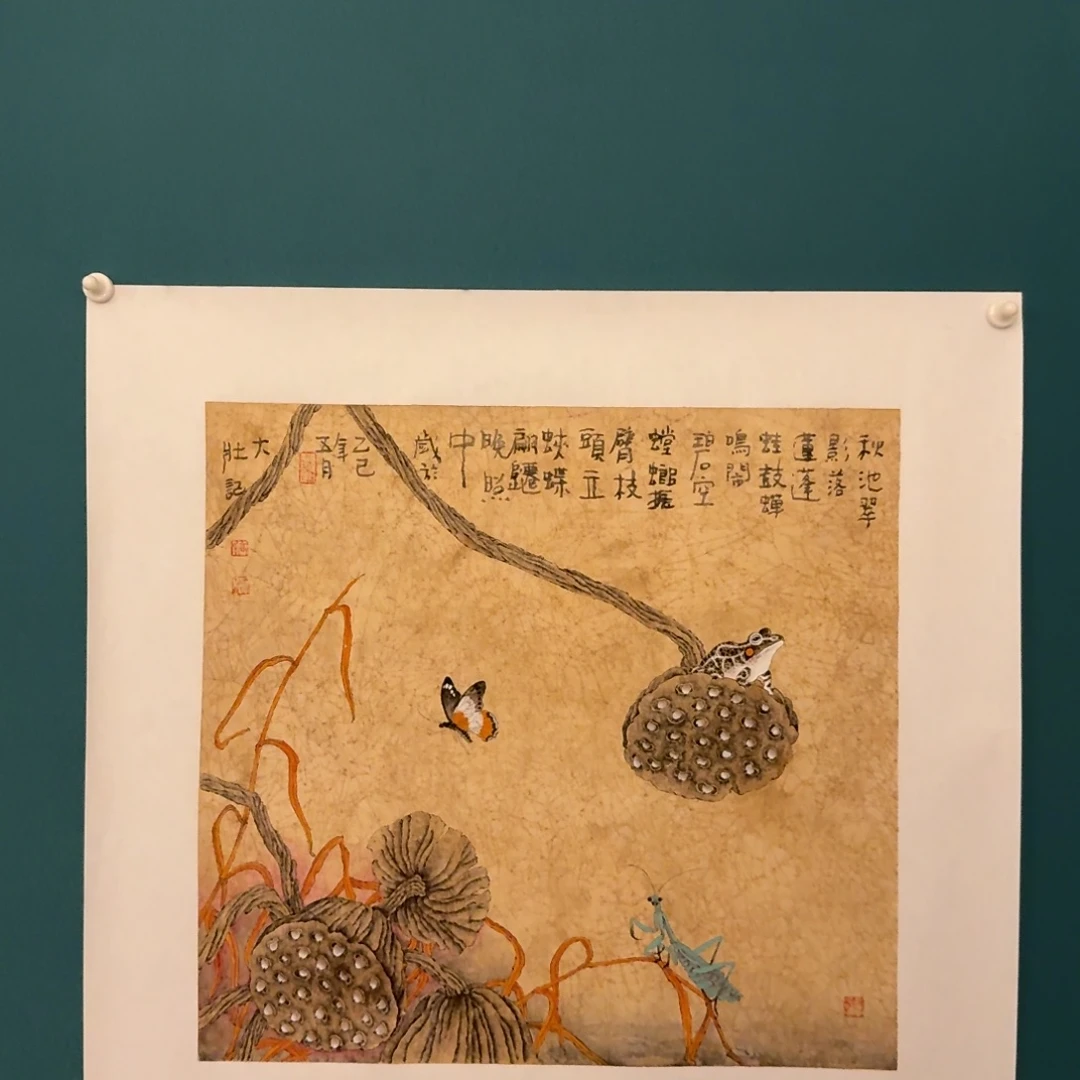 秋池翠
影落
蓮蓬
蛙鼓蟬
鳴閙
碧
空
螳螂振
臂枝
頭立
蛱蝶
翩躚
晚照
中
歲於
乙巳
年
五月
大
壯記